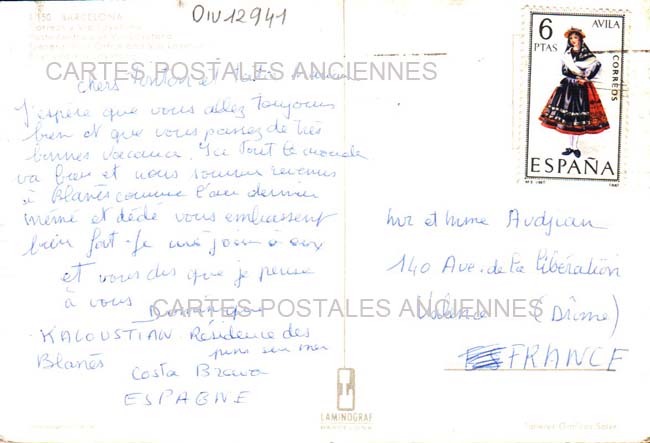 OIV12941
1.150 BARCELONA
CARTES POSTALES ANCIENNES
chers Tonton et Tata
J'espère que vous allez toujours
bien et que vous passez de très
bonnes vacances. Ici tout le monde
va bien et nous sommes revenus
à Blanès comme l'an dernier
mémé et dédé vous embrassent
bien fort. Je me joins à eux
et vous dis que je pense
à vous Dominique
KALOUSTIAN Résidence des
pins
Blanès
Costa Brava
ESPAGNE
6
PTAS
AVILA
CORREOS
ESPAÑA
1967
mr et mme Audjian
140 Ave. de la libération
CARTES POSTALES ANCIENNES
Valence (Drôme)
FRANCE
LAMINOGRAF
BARCELONA
Talleres Gráficos Soler